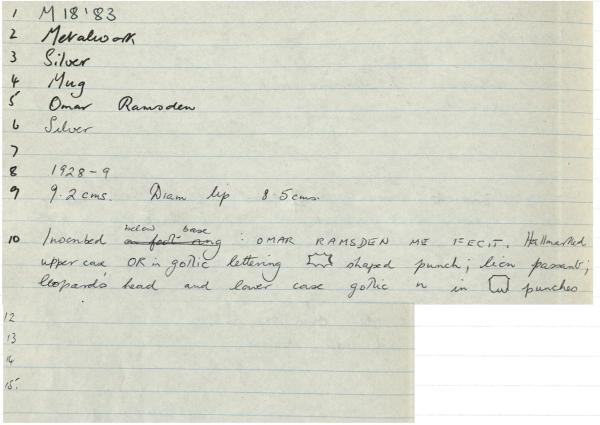 1 M 18'83
2 Metalwork
3 Silver
4 Mug
5 Omar Ramsden
6 Silver
7
8 1928-9
9 9.2 cms. Diam lip 8.5 cms.
below base
10 Inscribed on foot ring : OMAR RAMSDEN ME FECIT. Hallmarked
upper case OR in gothic lettering shaped punch; lion passant;
leopard's head and lower case gothic n in punches
12
13
14
15.